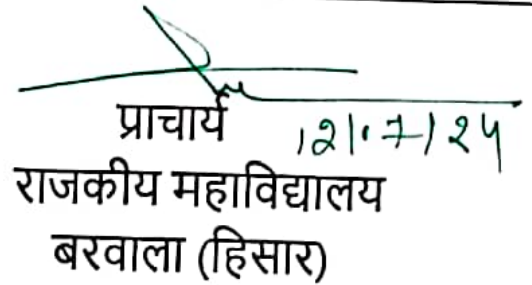 प्राचार्य 12/07/24
राजकीय महाविद्यालय
बरवाला (हिसार)